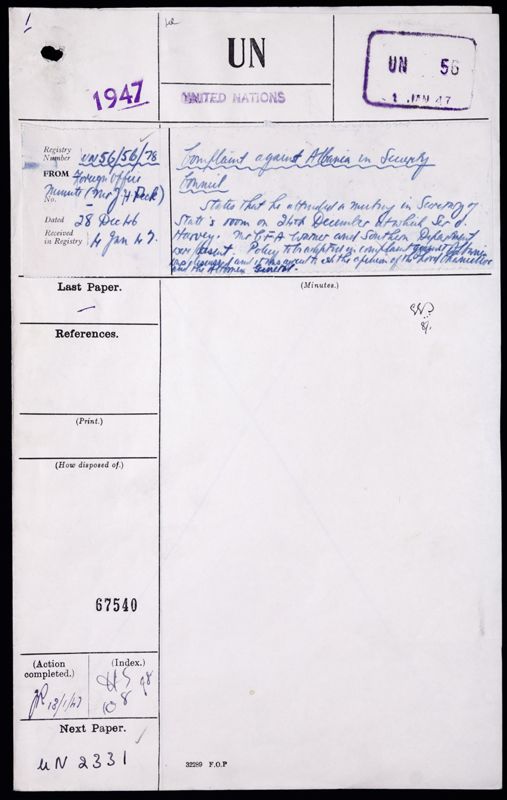 1
UN
UNITED NATIONS
1947
UN 56
1 JAN 47
Registry Number UN56/56/78
FROM Foreign Office
Minute (Mr
No.
Dated 28 Dec 46
Received in Registry 4 Jan 47.
Complaint against Albania in Security
Council
States that he attended a meeting in Secretary of
State's room on 24th December at which Sir O.
Harvey. Mr C F A Warner and Southern Department
were present. Policy to be adopted in complaint against Albania
was discussed and it was agreed to ask the opinion of the Lord Chancellor
and the Attorney General.
Last Paper.
-
References.
(Print.)
(How disposed of.)
67540
(Action completed.)
(Index.)
13/1/47
Next Paper.
UN 2331
(Minutes.)
32289 F.O.P